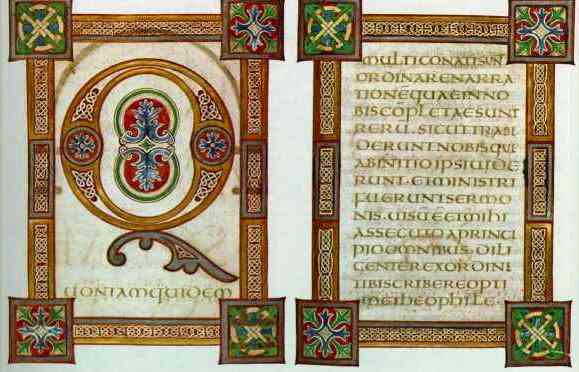 Q
UONIAMQUIDEM
MULTICONATISUN
ORDINARENARRA
TIONĒQUAEINNO
BISCŌPLETAESUNT
RERU. SICUTTRADI
DERUNTNOBISQUI
ABINITIOIPSIUIDE
RUNT. ETMINISTRI
FUERUNTSERMO
NIS. UISŪĒETMIHI
ASSECUTOAPRINCI
PIOOMNIBUS. DILI
GENTEREXORDINE
TIBISCRIBEREOPTI
METHEOPHILE.